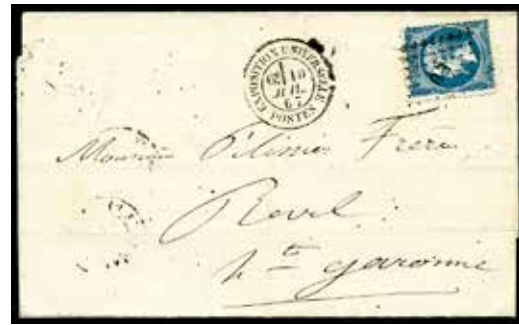 EXPOSITION UNIVERSELLE
10
JUIL.
67
POSTES
Monsieur Pélissier Frères
Revel
hte garonne